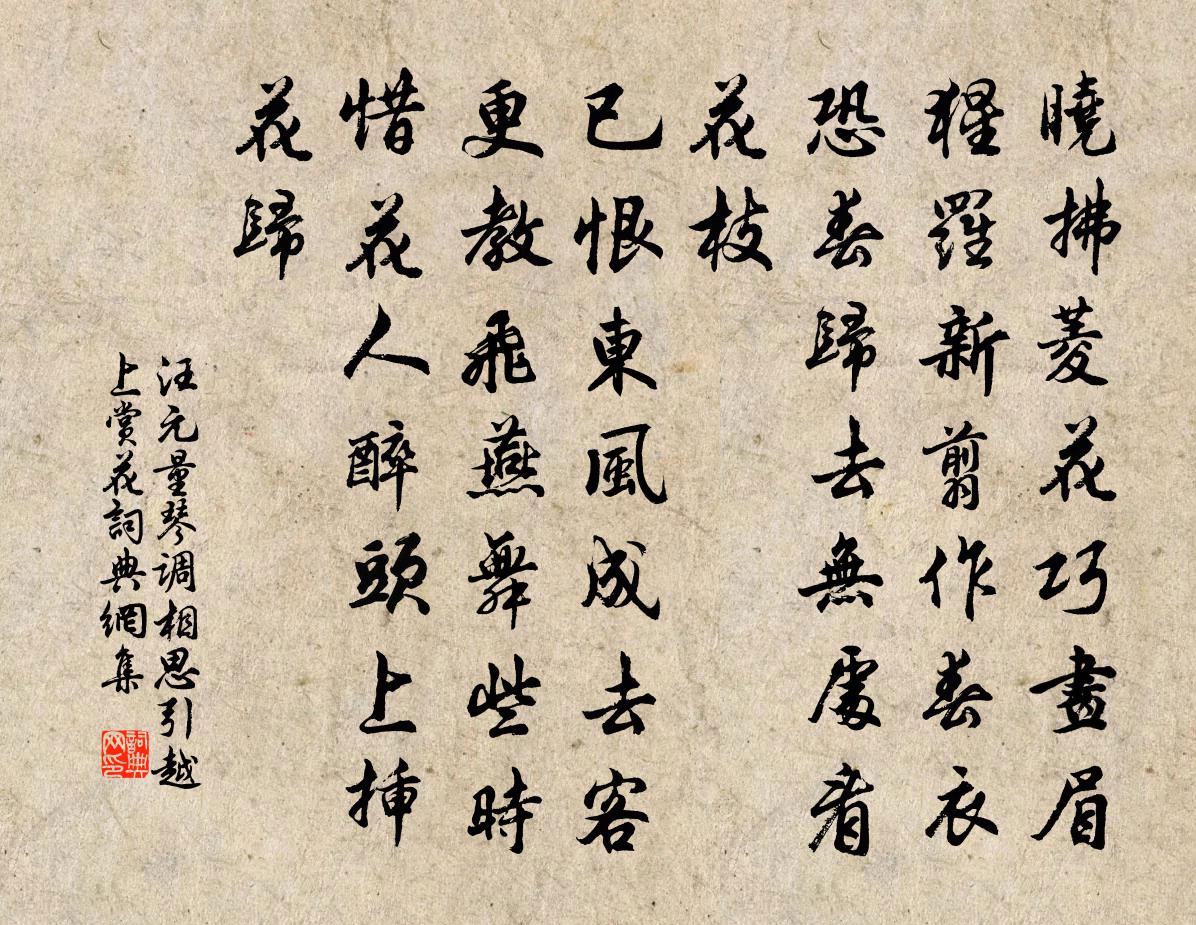 曉拂菱花巧畫眉
猩羅新翦作春衣
恐春歸去無處看
花枝
已恨東風成去客
更教飛燕舞些時
惜花人醉頭上插
花歸
汪元量琴调相思引越
上賞花詞典網集
詞典
网印